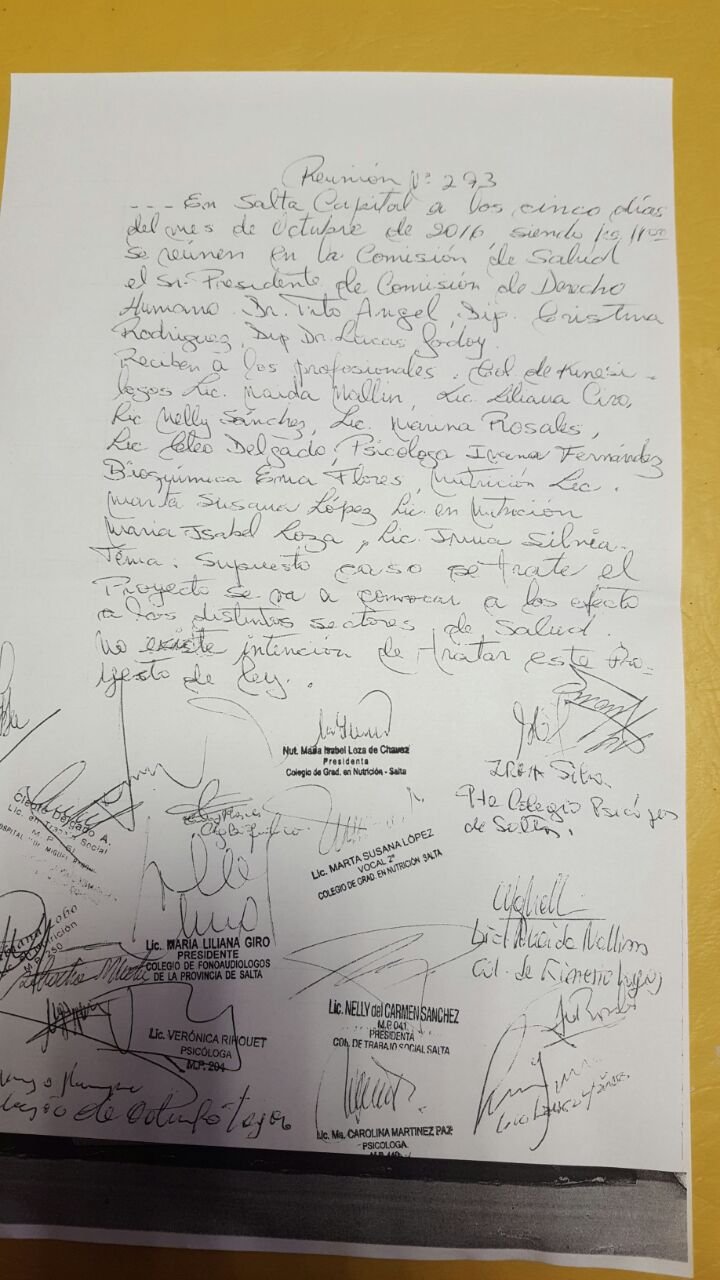 Reunión Nº 273
--- En Salta Capital a los cinco días
del mes de Octubre de 2016 siendo hs 11:00
se reúnen en la Comisión de Salud
el Sr. Presidente de Comisión de Derecho
Humano Dr. Tito Angel, Dip. Cristina
Rodriguez, Dip Dr. Lucas Godoy.
Reciben a los profesionales. Col. de Kinesi-
logos Lic. Maida Mallin, Lic. Liliana Ciro,
Lic Nelly Sánchez, Lic. Marina Rosales,
Lic Cleo Delgado, Psicóloga Ivana Fernández
Bioquímica Ema Flores, Nutrición Lic.
Marta Susana López Lic. en Nutrición
Maria Isabel Loza, Lic. Irma Silvia.
Tema: Supuesto caso se trate el
Proyecto se va a convocar a los efecto
a los distintos sectores de Salud.
No existe intención de tratar este Pro-
yecto de Ley.
Nut. Maria Isabel Loza de Chavez
Presidenta
Colegio de Grad. en Nutrición - Salta
Irma Silva
Pta Colegio Psicólogos
de Salta.
Cleofe Delgado A.
Lic. en Trabajo Social
M.P.
Lic. MARTA SUSANA LÓPEZ
VOCAL 2º
COLEGIO DE GRAD. EN NUTRICIÓN SALTA
Lic. MARÍA LILIANA GIRO
PRESIDENTE
COLEGIO DE FONOAUDIOLOGOS
DE LA PROVINCIA DE SALTA
Col. de Kinesiologos
Lic. NELLY del CARMEN SANCHEZ
M.P. 041
PRESIDENTA
COL. DE TRABAJO SOCIAL SALTA
Lic. VERÓNICA RIHOUET
PSICÓLOGA
M.P. 204
Lic. Ma. CAROLINA MARTINEZ PAZ
PSICOLOGA